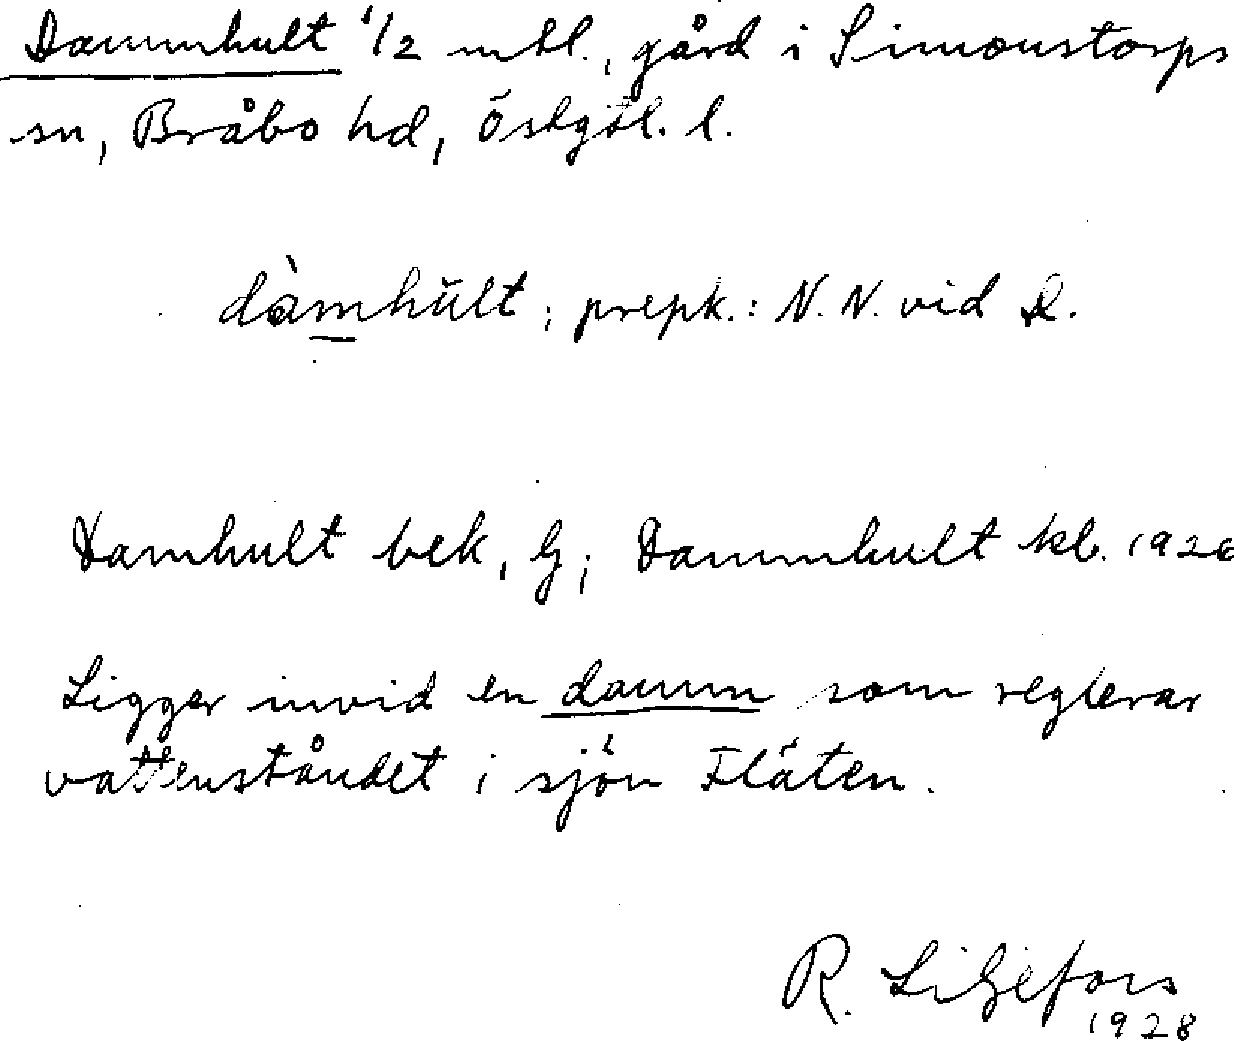 Dammhult 1/2 mtl., gård i Simonstorps
sn, Bråbo hd, Östgöl. l.
dàmhult; prepk.: N. N. vid D.
Damhult bek, G; Dammhult kb. 1926
Ligger invid en damm som reglerar
vattenståndet i sjön Fläten.
R. Liljefors
1928